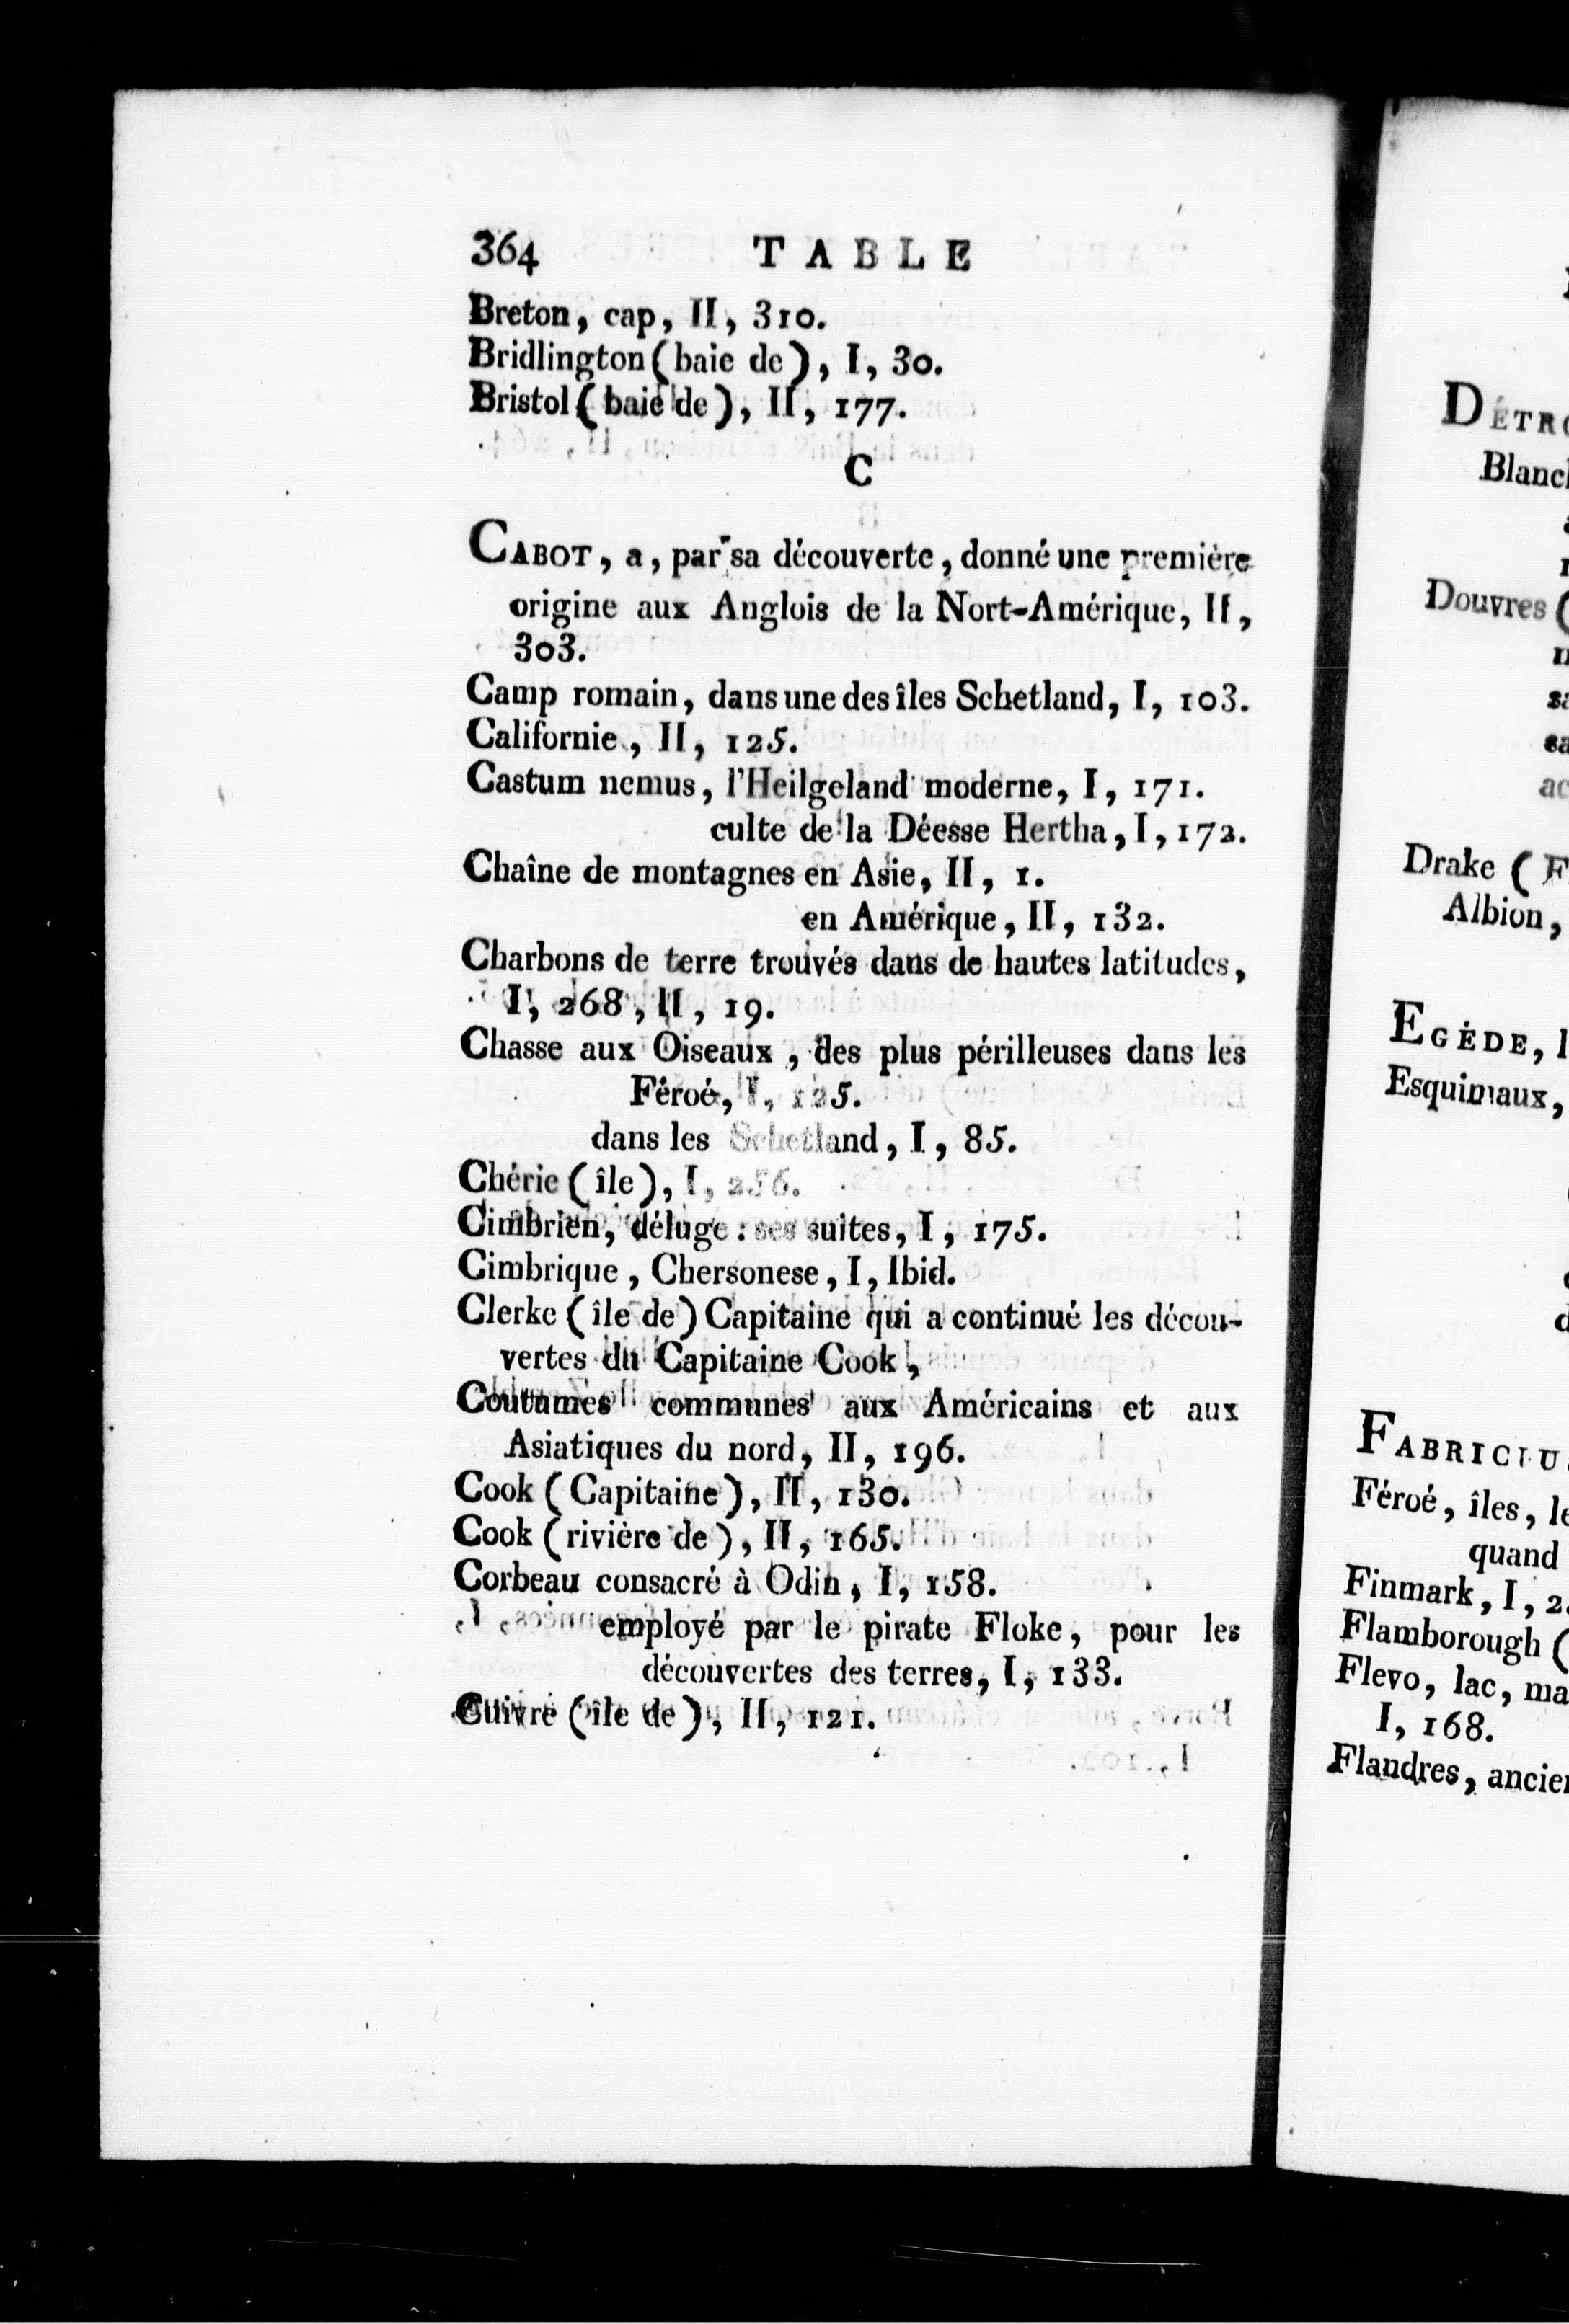 364 TABLE
Breton, cap, II, 310.
Bridlington (baie de), I, 30.
Bristol (baie de), II, 177.
C
CABOT, a, par sa découverte, donné une première
origine aux Anglois de la Nort-Amérique, II,
303.
Camp romain, dans une des îles Schetland, I, 103.
Californie, II, 125.
Castum nemus, l'Heilgeland moderne, I, 171.
culte de la Déesse Hertha, I, 172.
Chaîne de montagnes en Asie, II, 1.
en Amérique, II, 132.
Charbons de terre trouvés dans de hautes latitudes,
I, 268, II, 19.
Chasse aux Oiseaux, des plus périlleuses dans les
Féroé, I, 125.
dans les Schetland, I, 85.
Chérie (île), I, 256.
Cimbrien, déluge : ses suites, I, 175.
Cimbrique, Chersonese, I, Ibid.
Clerke (île de) Capitaine qui a continué les décou-
vertes du Capitaine Cook,
Coutumes communes aux Américains et aux
Asiatiques du nord, II, 196.
Cook (Capitaine), II, 130.
Cook (rivière de), II, 165.
Corbeau consacré à Odin, I, 158.
employé par le pirate Floke, pour les
découvertes des terres, I, 133.
Cuivre (île de), II, 121.
DÉTRO
Blanc
Douvres (
sa
sa
ac
Drake (F
Albion,
EGÈDE, l
Esquimaux,
d
FABRICIU
Féroé, îles, le
quand
Finmark, I, 2
Flamborough (
Flevo, lac, ma
I, 168.
Flandres, ancie